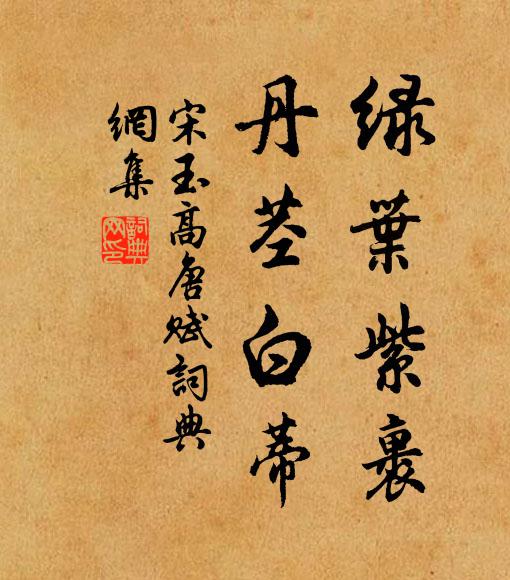 綠葉紫裹
丹莖白蒂
宋玉高唐賦詞典
網集
詞典
网印